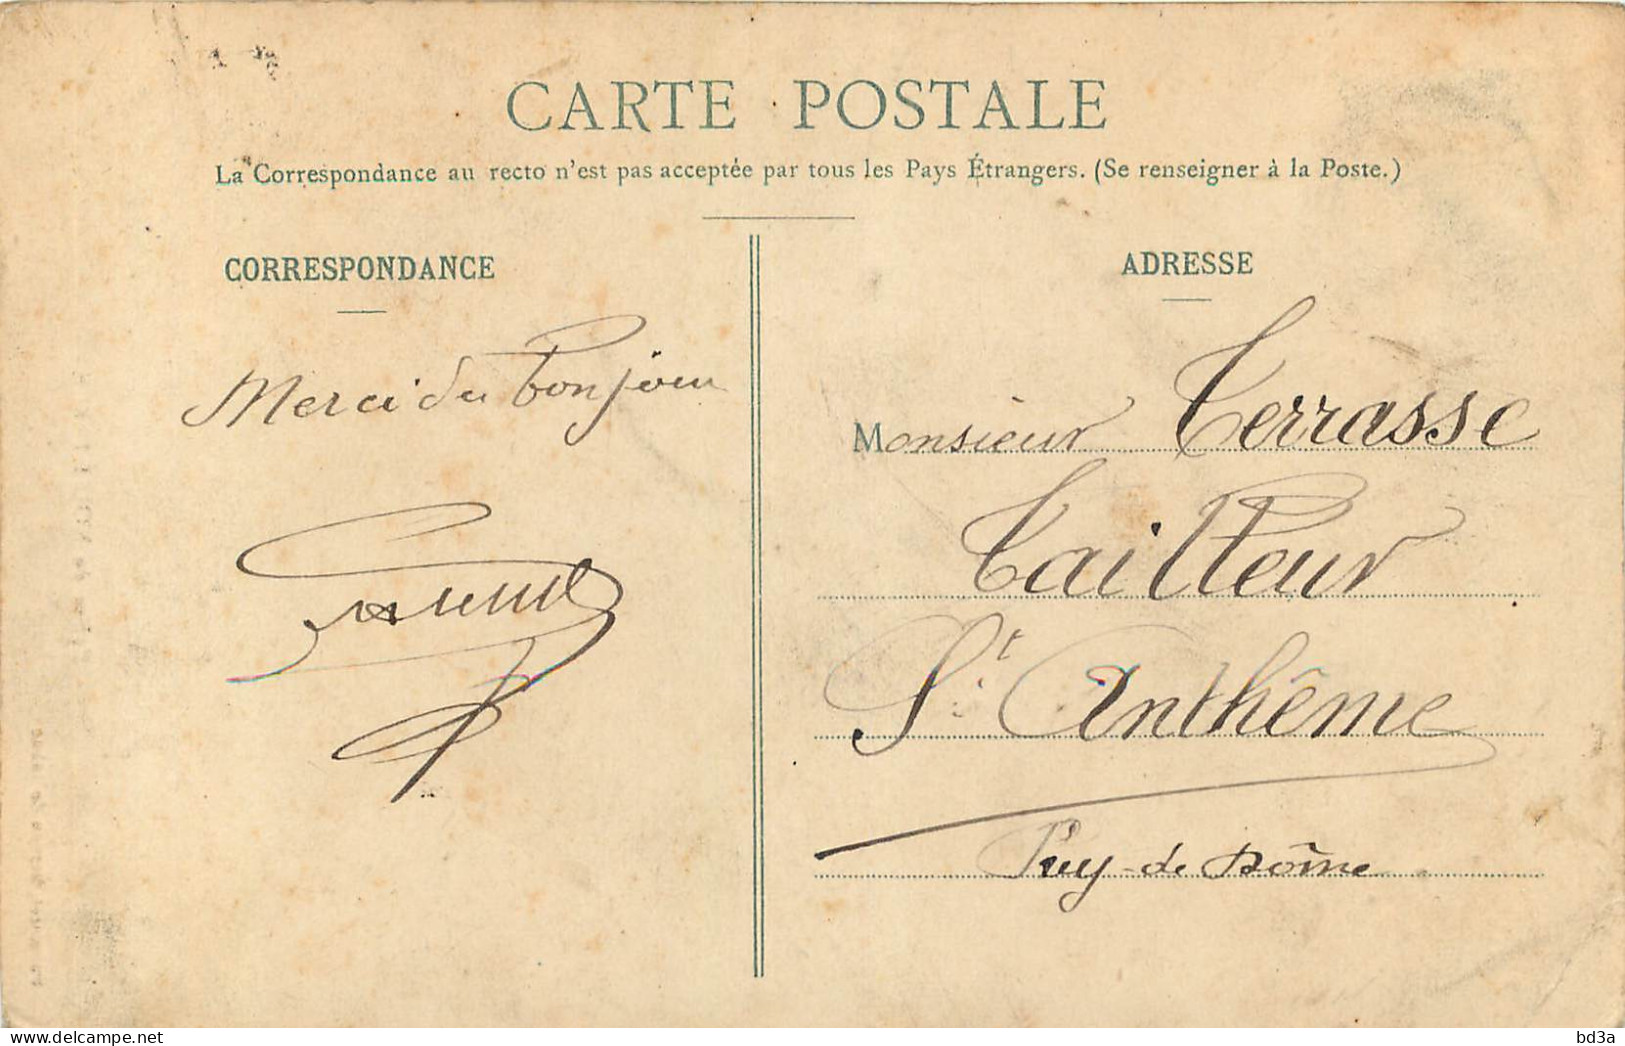 CARTE POSTALE
La Correspondance au recto n'est pas acceptée par tous les Pays Étrangers. (Se renseigner à la Poste.)
CORRESPONDANCE
Merci du bonjour
ADRESSE
Monsieur Terrasse
Tailleur
St Anthême
Puy-de Dôme
www.delcampe.net
bd3a